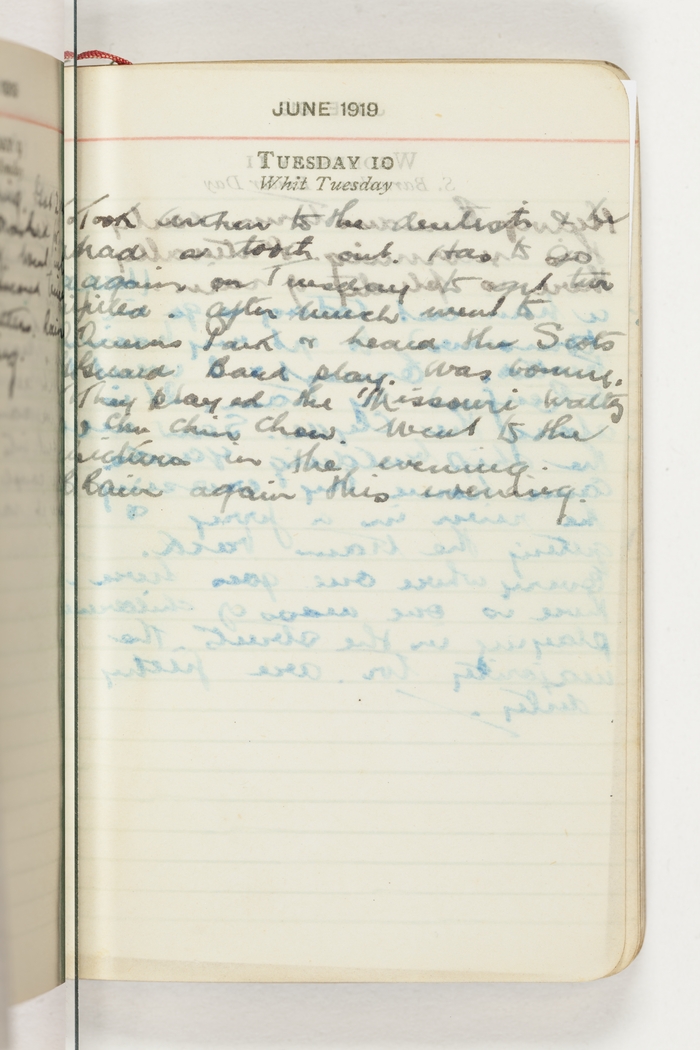 JUNE 1919
TUESDAY 10
Whit Tuesday
Took to the dentists & he
had a tooth out. Has to go
again on Tuesday to get two
filled. After lunch went to
Queens Park & heard the Scots
Guard Band play. Was boring.
They played the Missouri Waltz
& Chu Chin Chow. Went to the
pictures in the evening.
Rain again this evening.